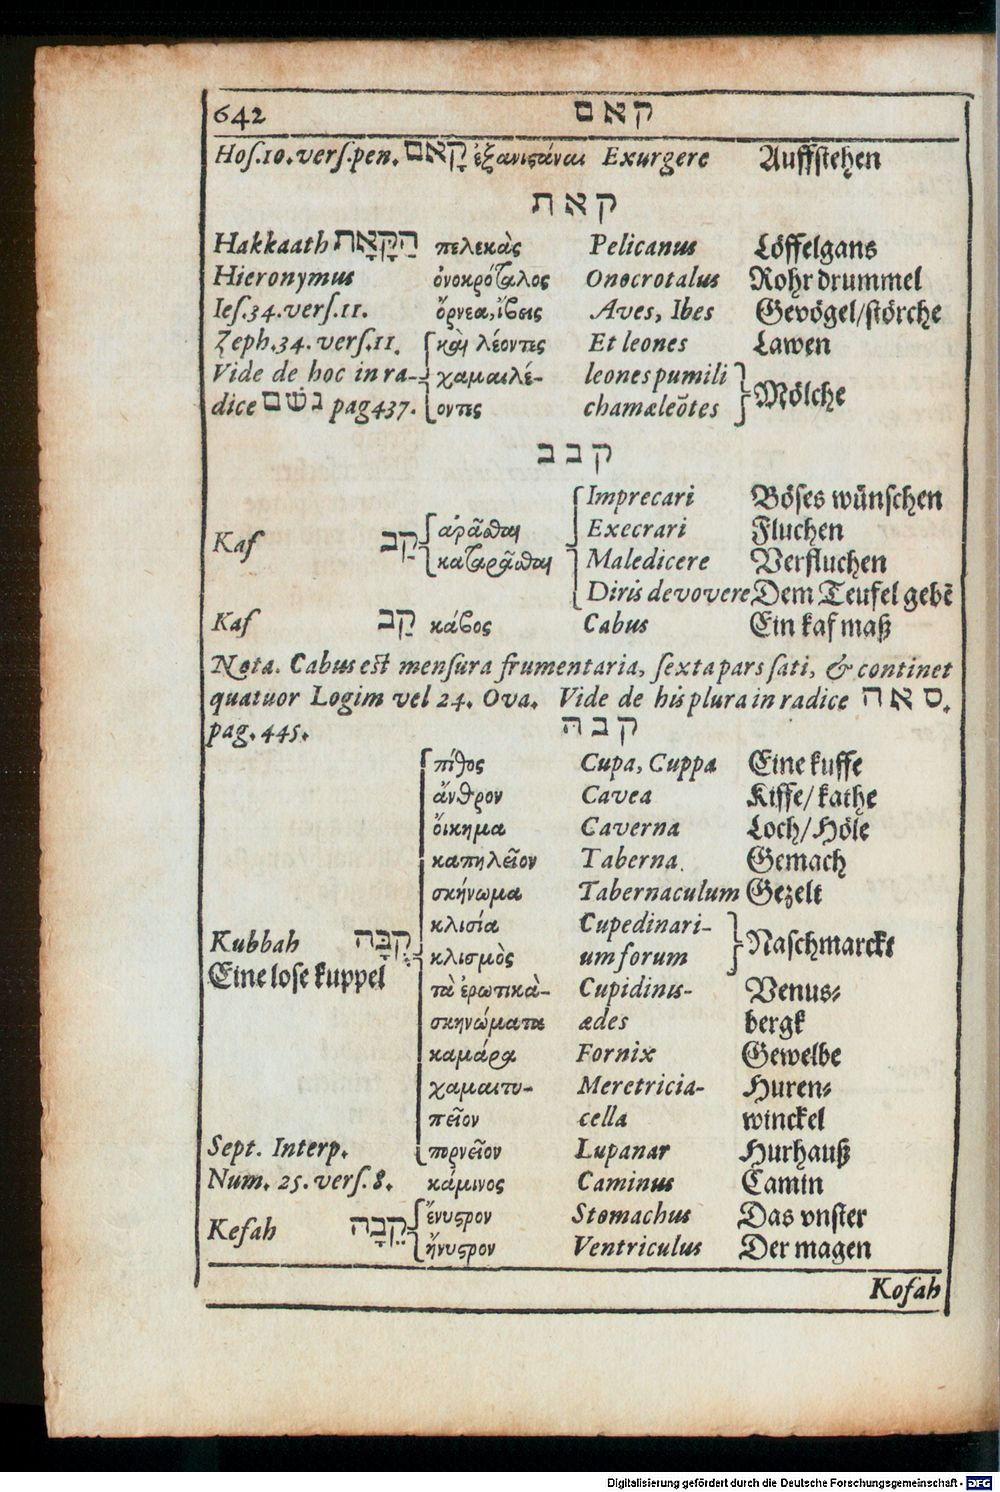 642 קאם
Hoſ.10.verſ.pen. קָאם ἐξανιστάναι Exurgere Auffſtehen
קאת
Hakkaath הַקָּאָת πελεκὰς Pelicanus Löffelgans
Hieronymus ὀνοκρόταλος Onocrotalus Rohrdrummel
Ieſ.34.verſ.11. ὄρνεα,ἴβεις Aves, Ibes Gevögel/ſtörche
Zeph.34. verſ.11. καὶ λέοντες Et leones Lawen
Vide de hoc in ra- χαμαιλέ- leones pumili Mölche
dice נשׁם pag437. οντες chamæleõtes
קבב
Imprecari Böſes wünſchen
Kaf קַב ἀρᾶσθαι Execrari Fluchen
καταρᾶσθαι Maledicere Verfluchen
Diris devovere Dem Teufel gebẽ
Kaf קַב κάβος Cabus Ein kaf maß
Nota. Cabus eſt menſura frumentaria, ſexta pars ſati, & continet
quatuor Logim vel 24. Ova. Vide de his plura in radice סאה.
pag.445. קבה
πίθος Cupa, Cuppa Eine kuffe
ἄνθρον Cavea Kiffe/kathe
ὄικημα Caverna Loch/Höle
καπηλεῖον Taberna. Gemach
σκήνωμα Tabernaculum Gezelt
κλισία Cupedinari- Naſchmarckt
Kubbah קֻבָּה κλισμὸς um forum
Eine loſe kuppel τὰ ἐρωτικὰ- Cupidinis- Venus⸗
σκηνώματα ædes bergk
καμάρα Fornix Gewelbe
χαμαιτυ- Meretricia- Huren⸗
πεῖον cella winckel
Sept. Interp. πορνεῖον Lupanar Hurhauß
Num. 25. verſ. 8. κάμινος Caminus Camin
Kefah קֵבָה ἔνυστρον Stomachus Das vnſter
ἤνυστρον Ventriculus Der magen
Kofah
Digitalisierung gefördert durch die Deutsche Forschungsgemeinschaft - DFG